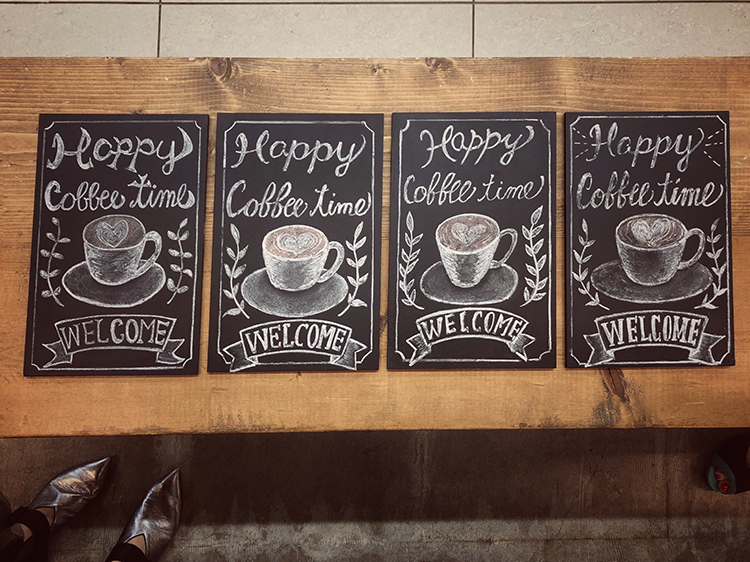 Happy
Cobbee time
WELCOME
Happy
Cobbee time
WELCOME
Happy
Cobbee time
WELCOME
Happy
Cobbee time
WELCOME